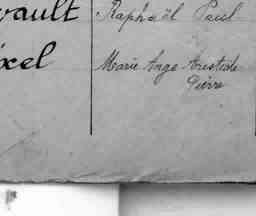 vault Raphaël Paul
xel Marie Ange Aristide
Pierre